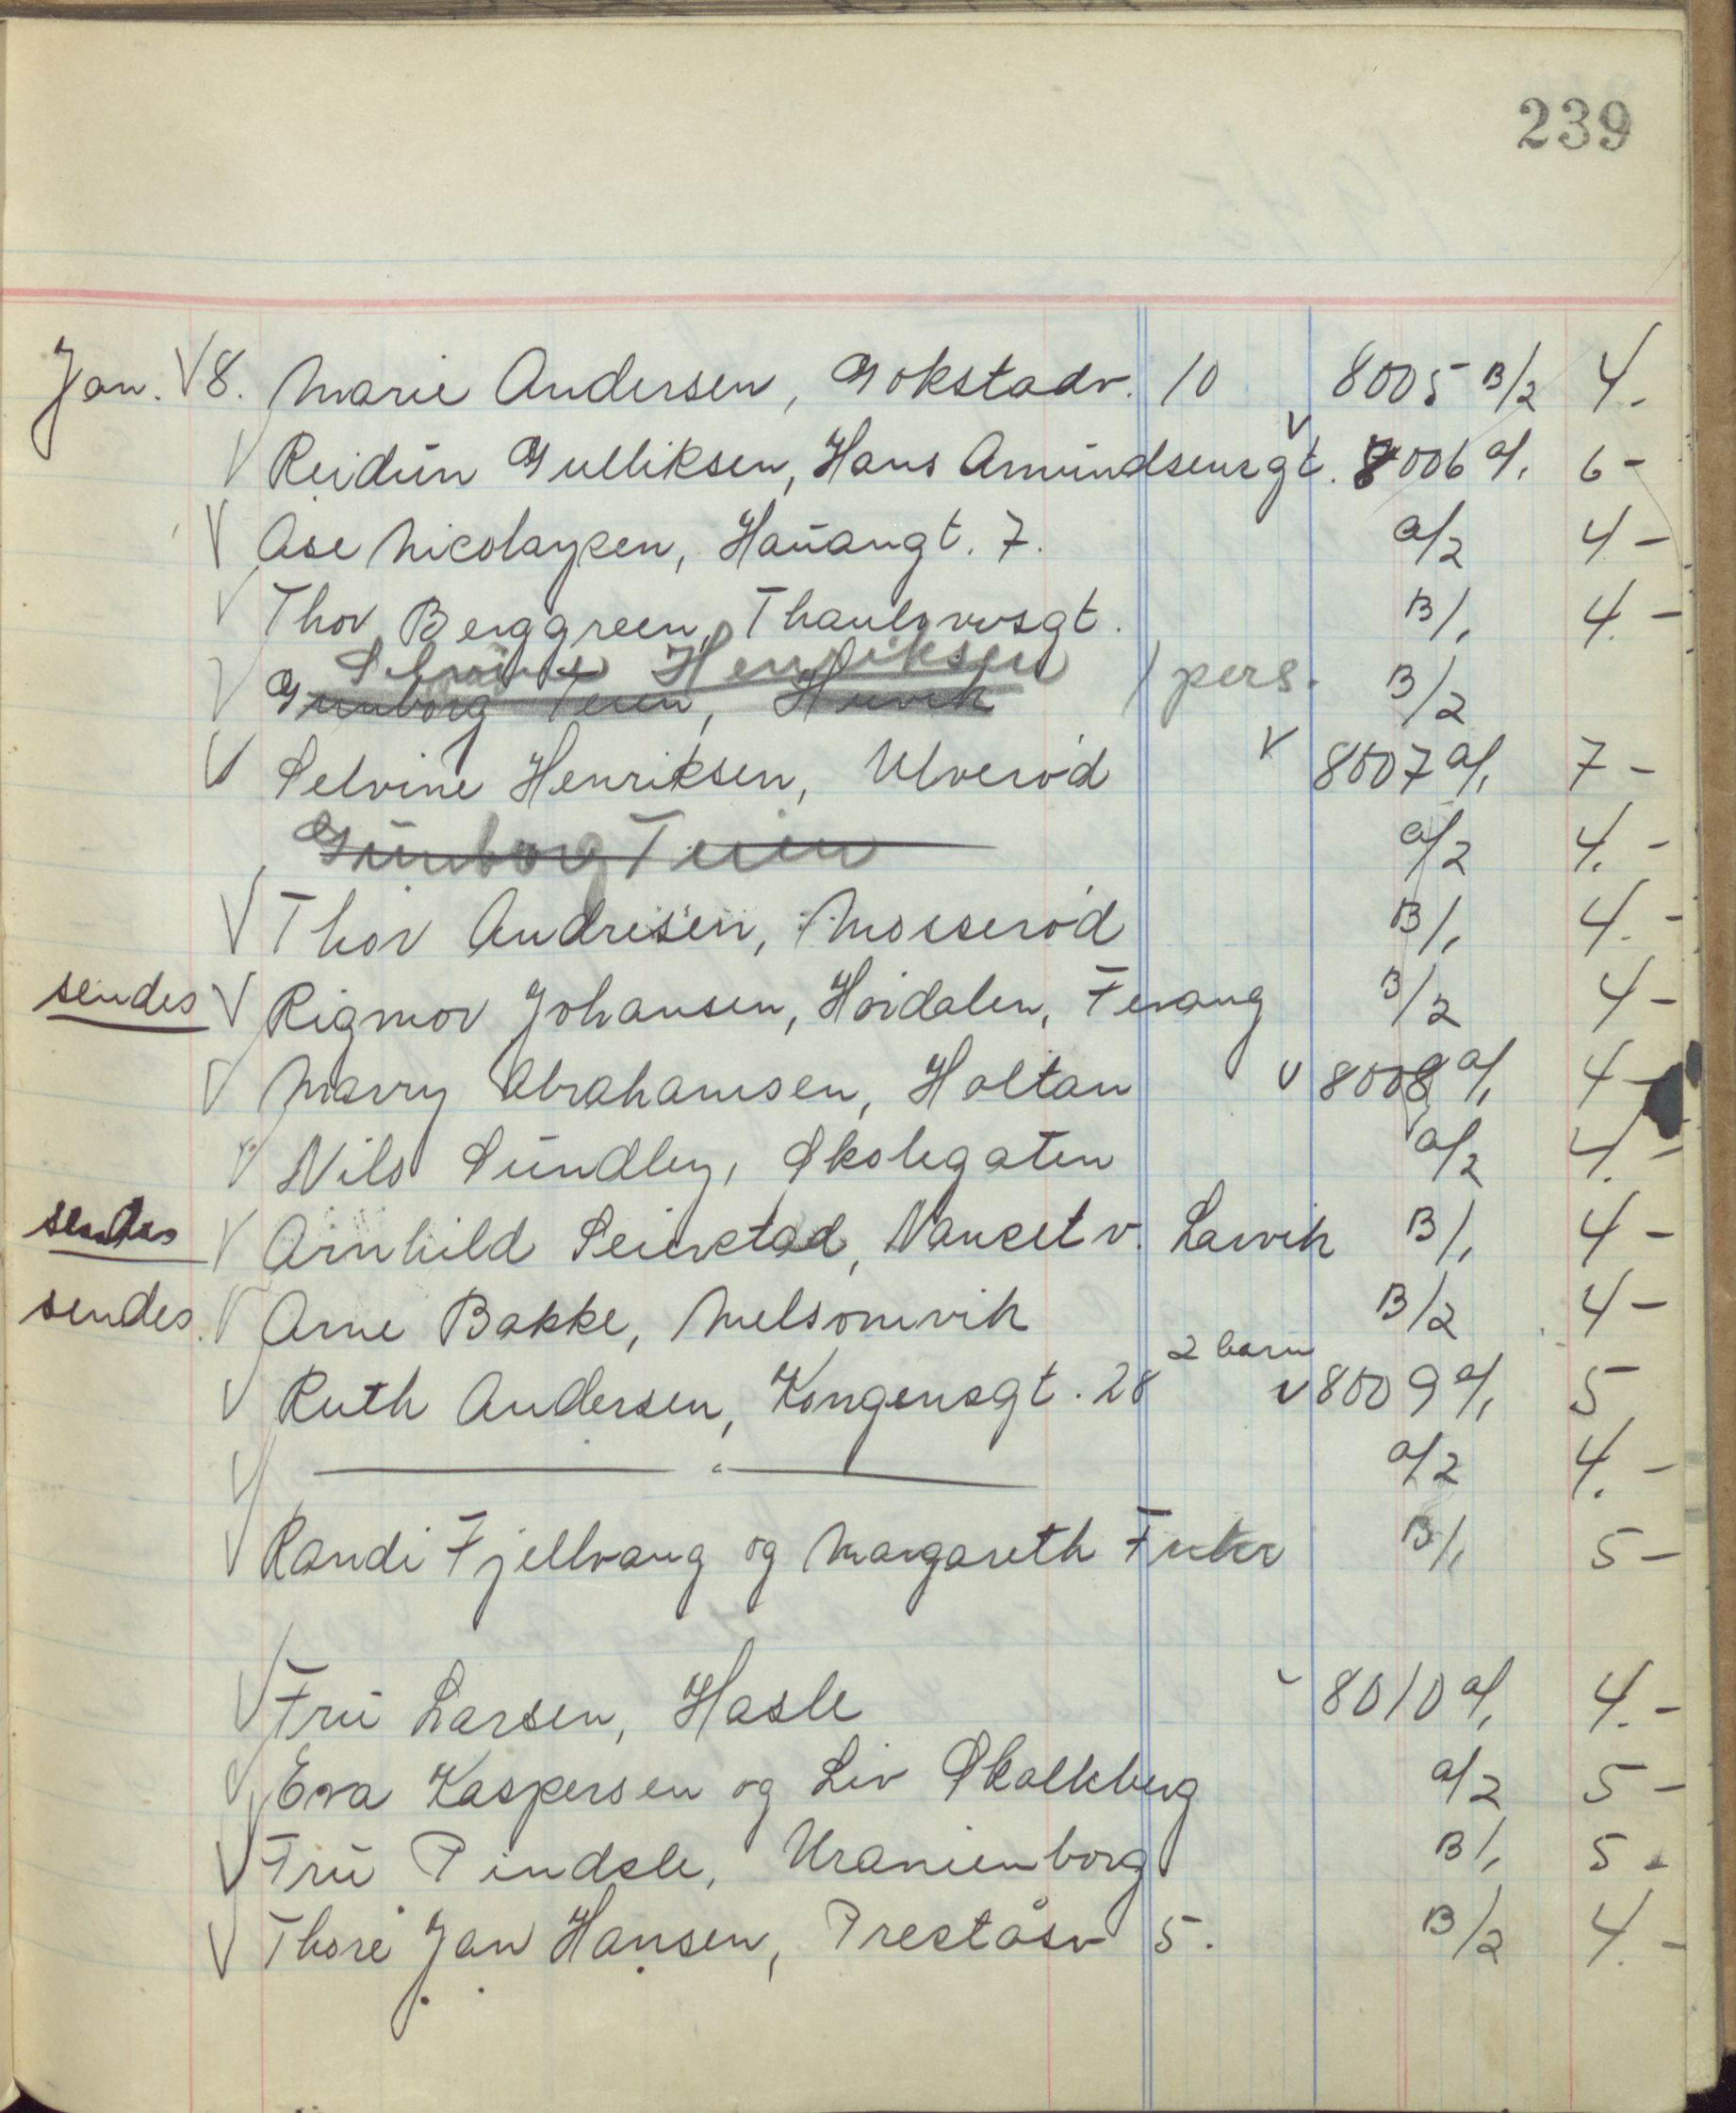 239
Jan. V 8. Marie Andersen, Gokstadv. 10 8005 B/2 4.
V Reidun Gulliksen, Hans Amundsensgt. v 8006 a/1 6-
V Åse Nicolaysen, Hauangt. 7. a/2 4-
V Thor Berggreen, Thaulowsgt. B/1 4.-
Selvine Henriksen 1 pers.
V Gunborg Teien, B/2
V Selvine Henriksen, Ulverød v 8007 a/1 7-
Gunborg Teien a/2 4.-
V Thor Andresen, Mosserød B/1 4.-
sendes V Rigmor Johansen, Høidalen, Fevang B/2 4-
V Marry Abrahamsen, Holtan v 8008 a/1 4-
V Nils Sundby, Skolegaten a/2 4.-
sendes V Arnhild Seierstad, Nanset v. Larvik B/1 4-
sendes. V Arne Bakke, Melsomvik B/2 4-
2 barn
V Ruth Andersen, Kongensgt. 28 v 8009 a/1 5
V — " — a/2 4.-
V Randi Fjellvang og Margareth B/1 5-
V Fru Larsen, Hasle v 8010 a/1 4.-
V Eva Kaspersen og Liv Skalleberg a/2 5-
V Fru Pindsle, Uranienborg B/1 5-
V Thore Jan Hansen, Preståsv 5. B/2 4.-